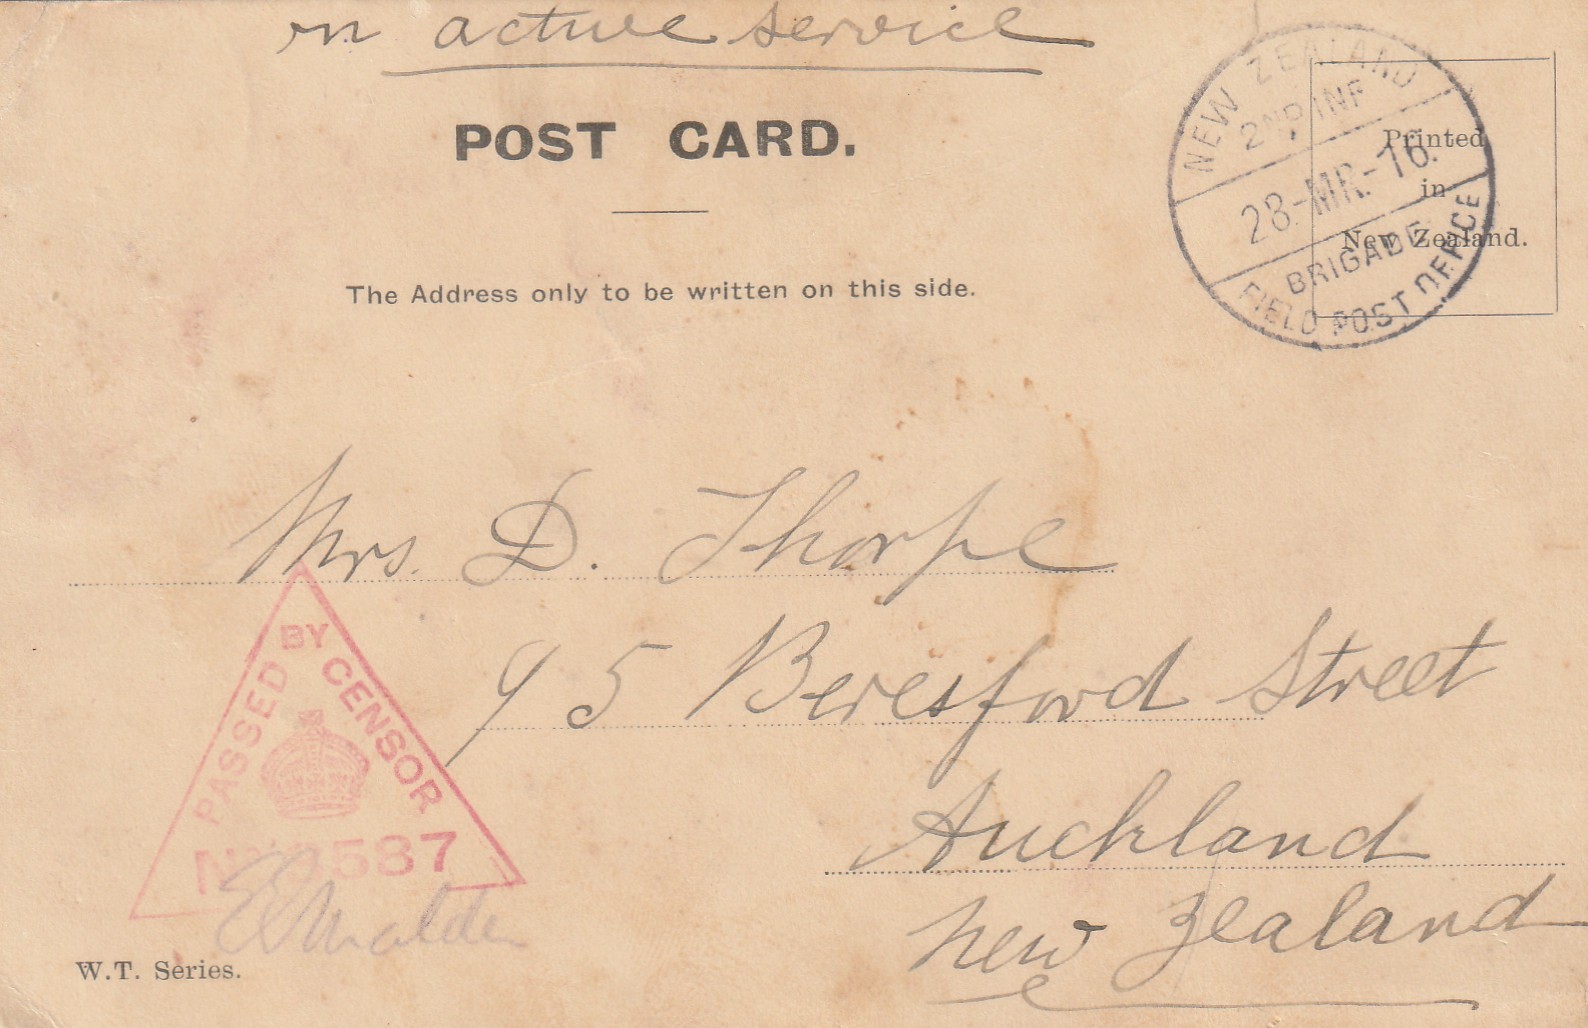 on active service
POST CARD.
The Address only to be written on this side.
NEW ZEALAND
2ND INF
28-MR.-16.
BRIGADE
FIELD POST OFFICE
Printed
in
New Zealand.
Mrs. D. Thorpe
95 Beresford Street
Auckland
New Zealand
PASSED BY CENSOR
587
W.T. Series.